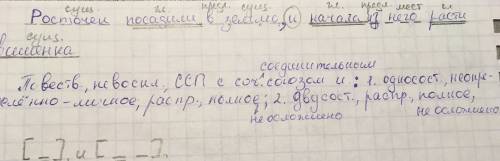 сущ. гл. предл. сущ. гл. предл. мест. гл.
Росточек посадили в землю, и начала из него расти
сущ.
вишанка
соединительным
Повеств., невоскл., ССП с соч. союзом и: 1. односост., неопре-
делённо-личное, распр., полное; 2. двусост., распр., полное,
не осложнено не осложнено
[_], и [_ _].